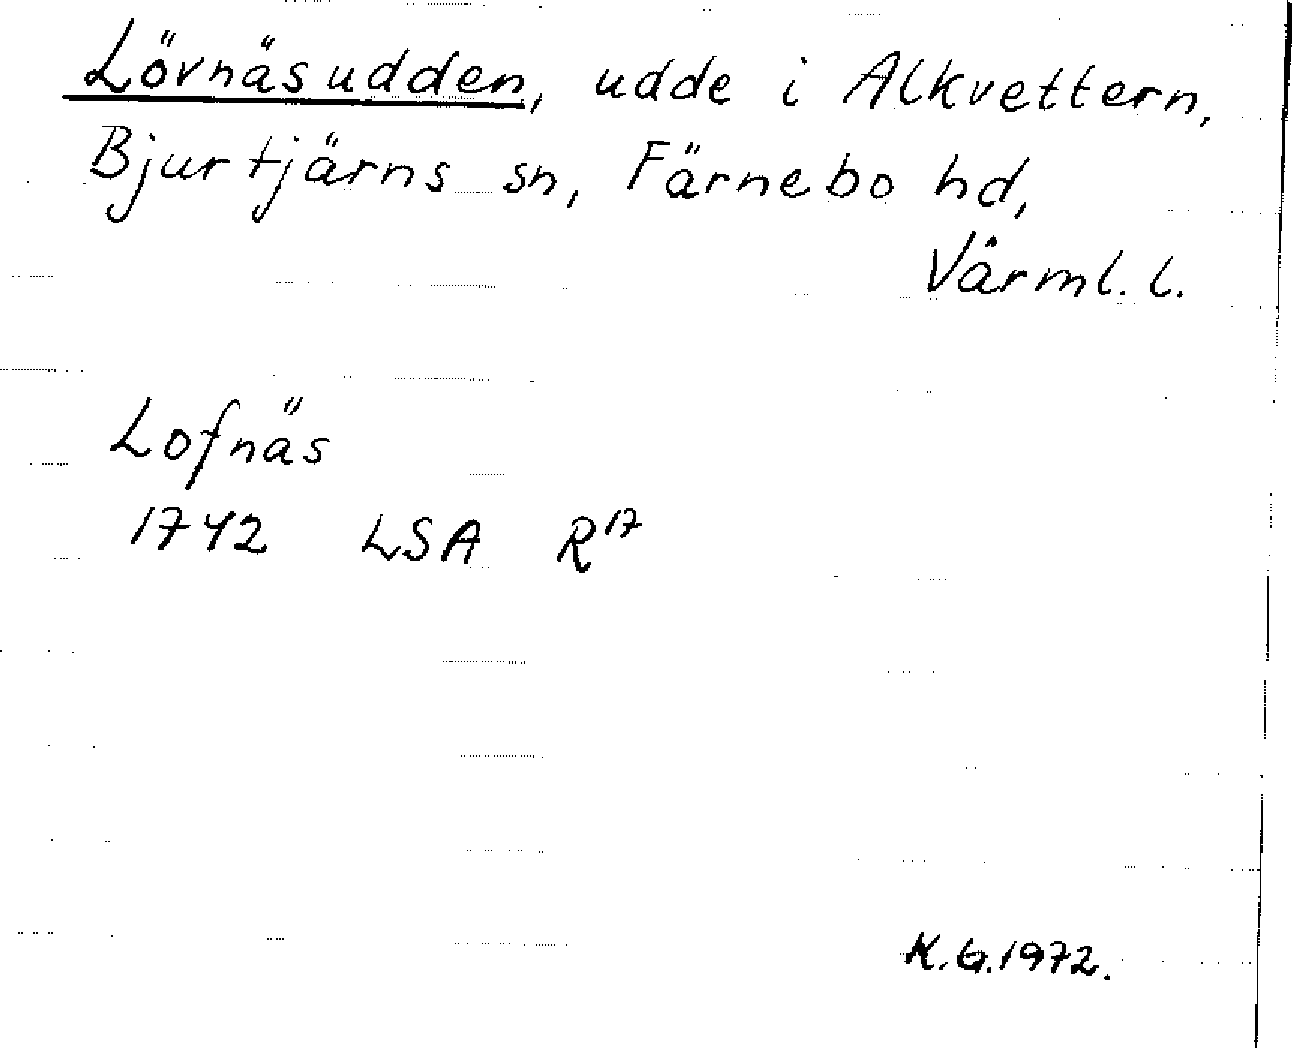 Lövnäsudden, udde i Alkvettern,
Bjurtjärns sn, Färnebo hd,
Värml. l.
Lofnäs
1742 LSA R17
K.G.1972.